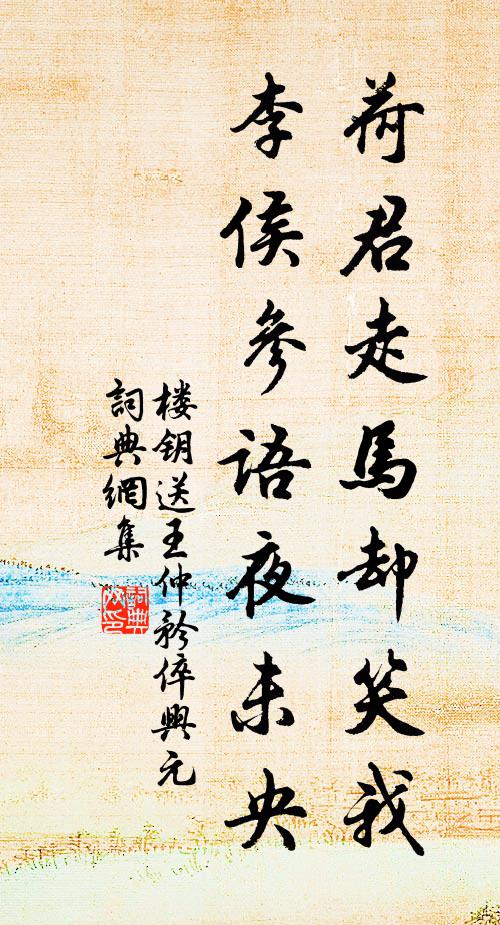 荷君走馬却笑我
李侯參語夜未央
楼钥送王仲矜倅興元
詞典網集